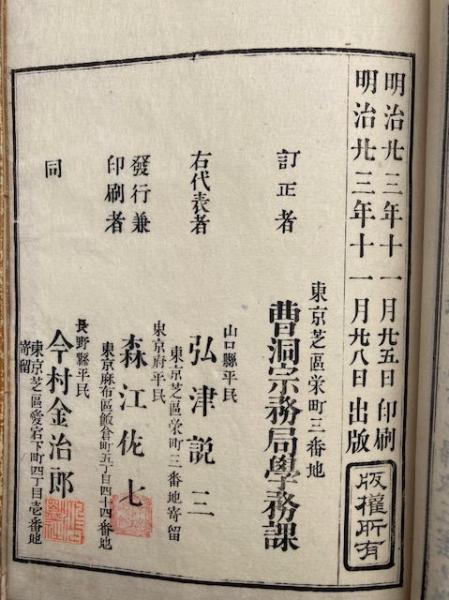 明治廿三年十一月廿五日印刷
明治廿三年十一月廿八日出版
版權所有
東京芝區栄町三番地
訂正者
曹洞宗務局學務課
山口縣平民
右代表者
弘津説三
東京芝區栄町三番地寄留
東京府平民
發行兼
印刷者
森江佐七
東京麻布區飯倉町五丁目四十四番地
長野縣平民
同
今村金治郎
東京芝區愛宕下町四丁目壱番地
寄留